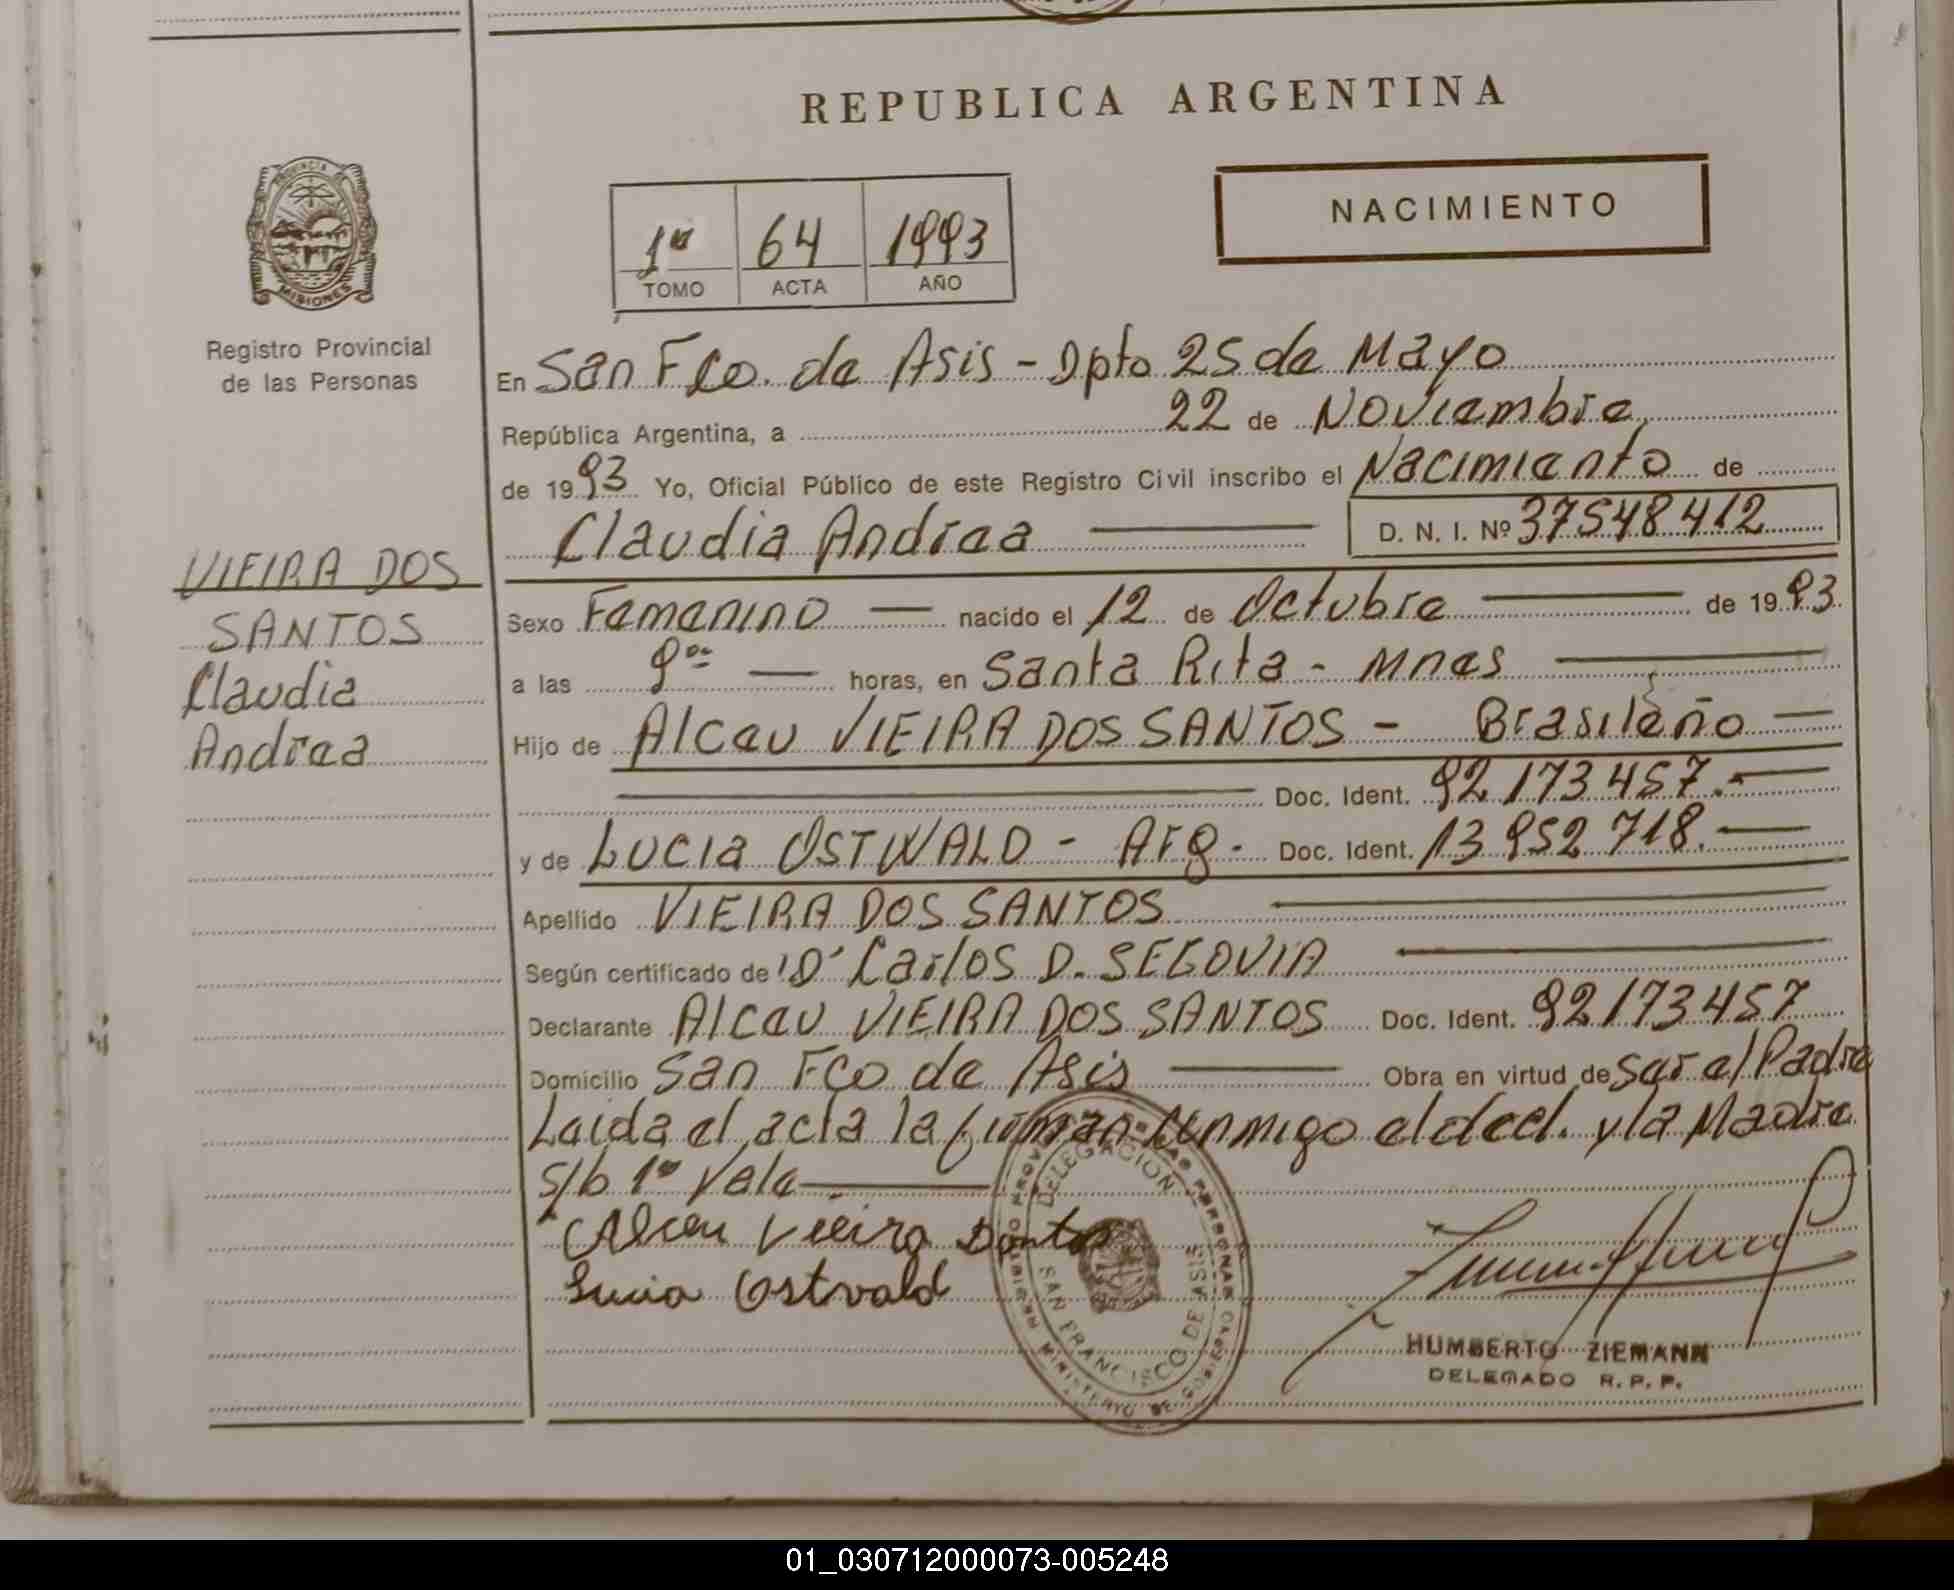 REPUBLICA ARGENTINA
PROVINCIA DE
MISIONES
Registro Provincial
de las Personas
NACIMIENTO
1º 64 1993
TOMO ACTA AÑO
En San Fco. de Asis - Dpto 25 de Mayo
República Argentina, a 22 de Noviembre
de 1993 Yo, Oficial Público de este Registro Civil inscribo el Nacimiento de
Claudia Andrea D. N. I. Nº 37548412
VIEIRA DOS
SANTOS
Claudia
Andrea
Sexo Femenino nacido el 12 de Octubre de 1993
a las 9ºº horas, en Santa Rita - Mnes
Hijo de Alceu VIEIRA DOS SANTOS - Brasileño
Doc. Ident. 92.173.457.-
y de Lucia OSTWALD - Arg. Doc. Ident. 13 952 718.
Apellido VIEIRA DOS SANTOS
Según certificado de Dº Carlos D. SEGOVIA
Declarante Alceu VIEIRA DOS SANTOS Doc. Ident. 92173457
Domicilio San Fco de Asis Obra en virtud de ser el Padre
Leida el acta la firman conmigo el decl. y la Madre
s/b 1º Vale
Alceu Vieira Santos
Lucia Ostvald
DELEGACION
SAN FRANCISCO DE ASIS
MINISTERIO DE GOBIERNO
HUMBERTO ZIEMANN
DELEGADO R. P. P.
01_030712000073-005248